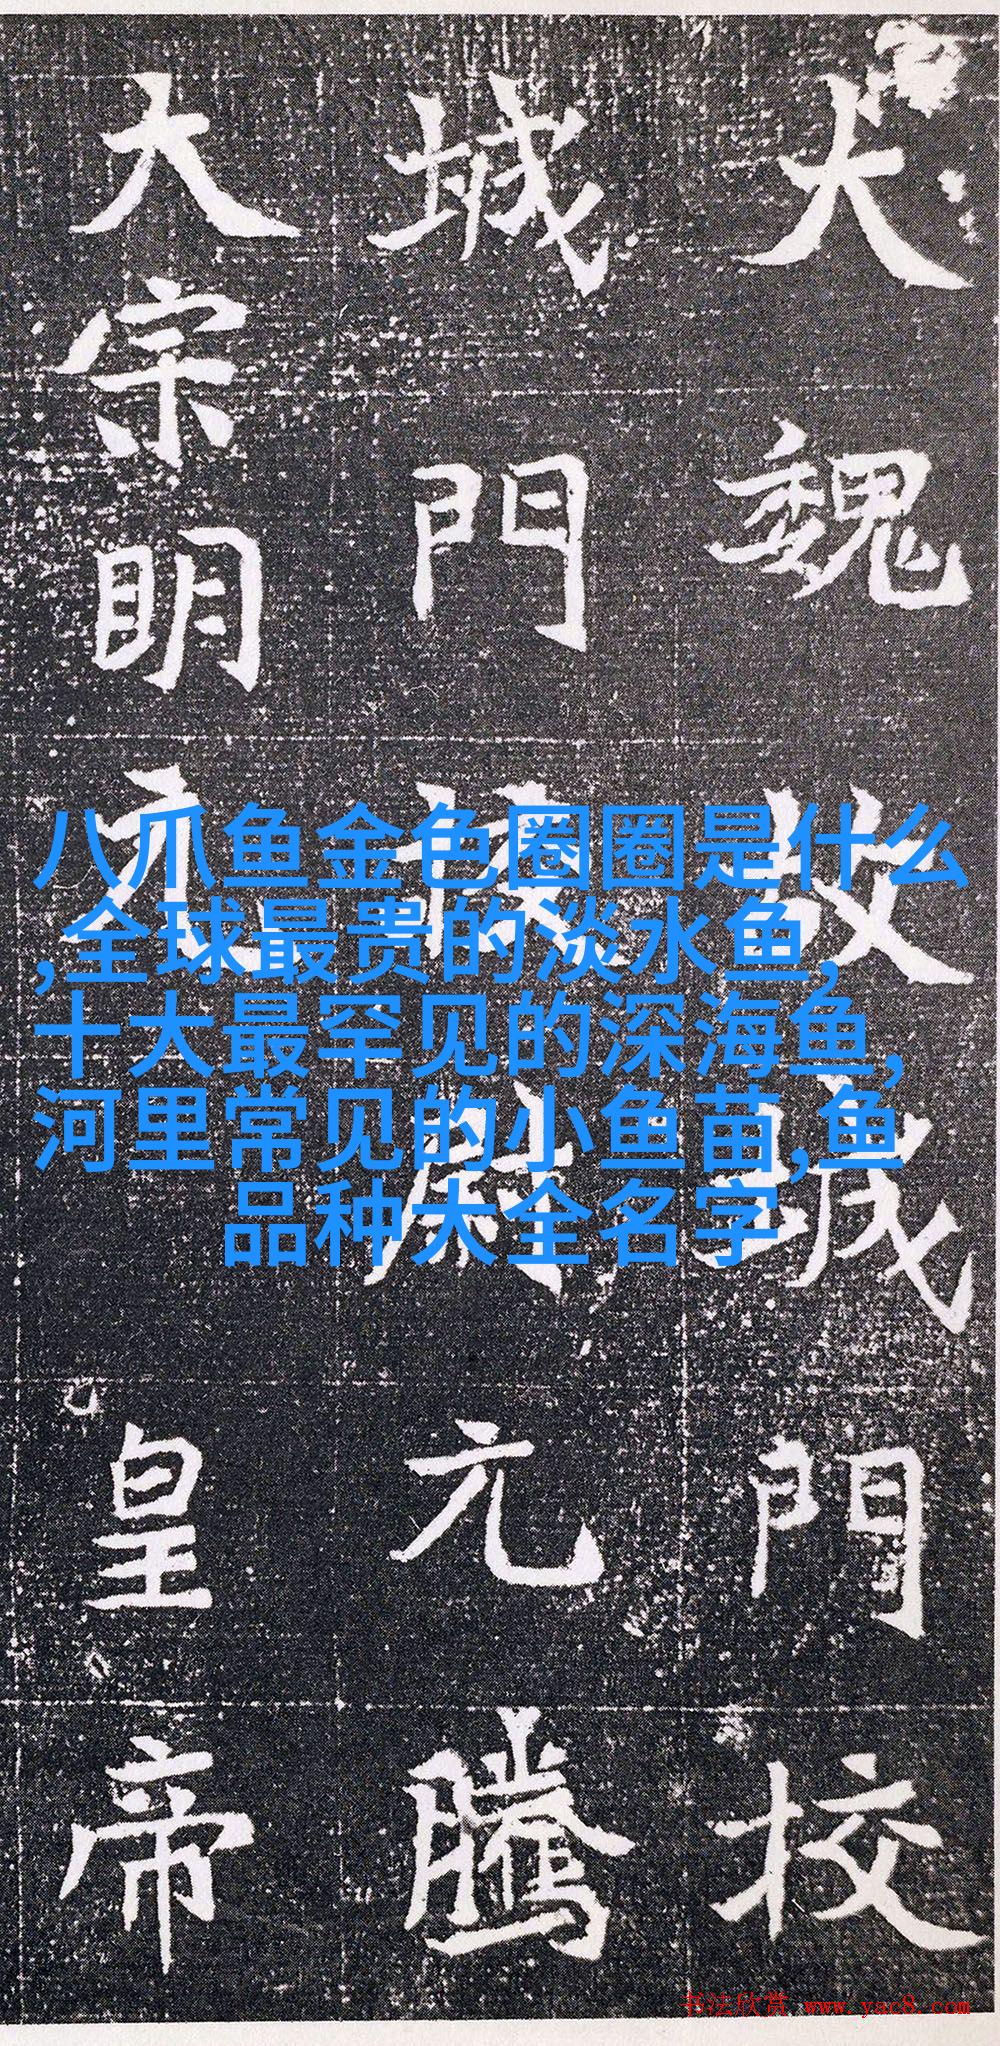 大魏故城門校
城門校尉元騰
大宗明元皇帝
八爪鱼金色圈圈是什么
,全球最贵的淡水鱼,
十大最罕见的深海鱼,
河里常见的小鱼苗,鱼
品种大全名字
书法欣赏 www.yac8.com